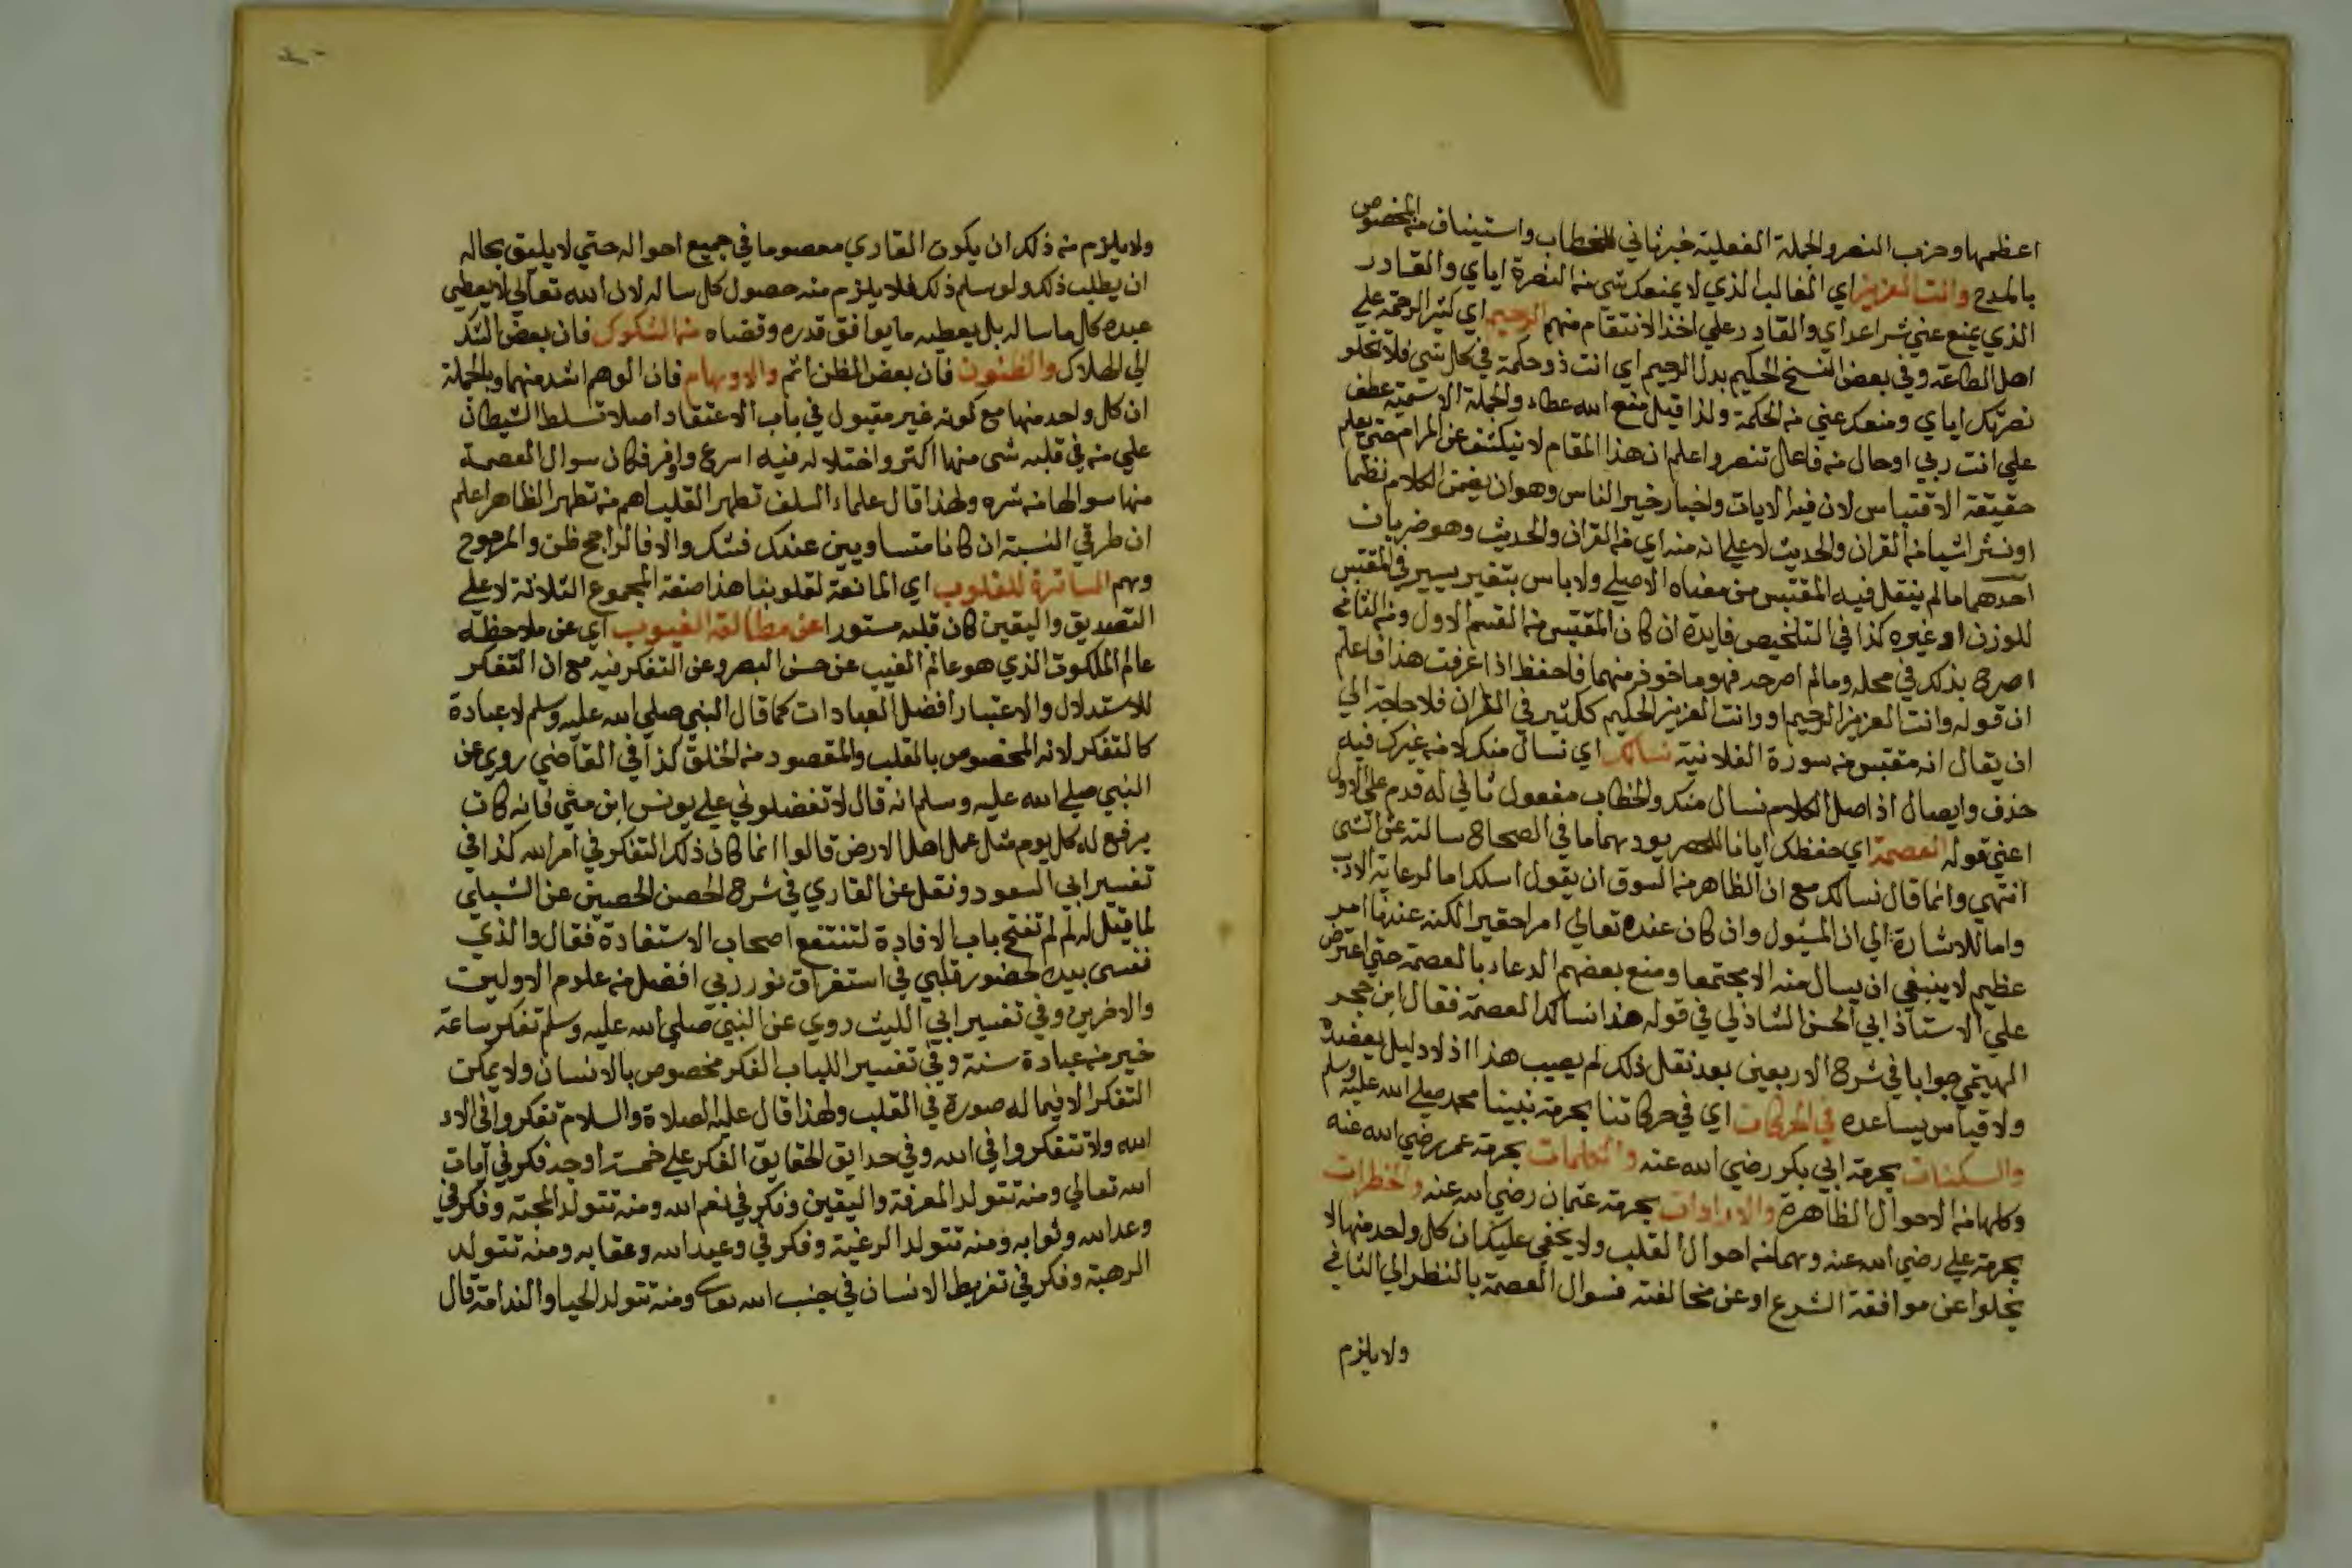 اعظمها وحزب النصر والجملة الفعلية خبر ثاني للخطاب واستيناف من المخصوص
بالمدح وانت العزيز اي الغالب الذي لا يمنعك شئ من النصرة اياي والقادر
الذي يمنع عني شر اعداي والقادر علي اخذ الانتقام منهم الرحيم اي كثير الرحمة علي
اهل الطاعة وفي بعض النسخ الحكيم بدل الرحيم اي انت ذو حكمة في كل شئ فلا تخلو
نصرتك اياي ومنعك عني من الحكمة ولذا قيل منع الله عطاء والجملة الاسمية عطف
علي انت ربي او حال من فاعل تنصر واعلم ان هذا المقام لا ينكشف عن المرام حتي يعلم
حقيقة الاقتباس لان فيه الايات واخبار خير الناس وهو ان يضمن الكلام نظما
او نثرا شيا من القران والحديث لا علي انه منه اي من القران والحديث وهو ضربان
احدهما ما لم ينقل فيه المقتبس من معناه الاصلي ولا باس بتغير يسير في المقتبس
للوزن او غيره كذا في التلخيص فايدة ان كان المقتبس من القسم الاول ومن الثاني
اصرح بذلك في محله وما لم اصرحه فهو ماخوذ منهما فاحفظ اذا عرفت هذا فاعلم
ان قوله وانت العزيز الرحيم او وانت العزيز الحكيم كثير في القران فلا حاجة الي
ان يقال انه مقتبس من سورة الفلانية نسالك اي نسال منك لا من غيرك فيه
حذف وايصال اذ اصل الكلام نسال منك والخطاب مفعول ثاني له قدم علي الاول
اعني قوله العصمة اي حفظك ايانا للحصر يود بهما ما في الصحاح سالته عن الشئ
انتهي وانما قال نسالك مع ان الظاهر من السوق ان يقول اسلك اما لرعاية الادب
واما للاشارة الي ان المسئول وان كان عنده تعالي امرا حقيرا لكنه عندنا امر
عظيم لا ينبغي ان يسال منه الا مجتمعا ومنع بعضهم الدعاء بالعصمة حتي اعترض
علي الاستاذ ابي الحسن الشاذلي في قوله هذا نسالك العصمة فقال ابن حجر
الهيتمي جوابا في شرح الاربعين بعد نقل ذلك لم يصيب هذا اذ لا دليل يعضده
ولا قياس يساعده في الحركات اي في حركاتنا بحرمة نبينا محمد صلي الله عليه وسلم
والسكنات بحرمة ابي بكر رضي الله عنه والكلمات بحرمة عمر رضي الله عنه
وكلها من الاحوال الظاهرة والارادات بحرمة عثمان رضي الله عنه والخطرات
بحرمة علي رضي الله عنه وهما من احوال القلب ولا يخفي عليك ان كل واحد منها لا
يخلوا عن موافقة الشرع او عن مخالفته فسوال العصمة بالنظر الي الثاني
ولا يلزم
ولا يلزم من ذلك ان يكون القاري معصوما في جميع احواله حتي لا يليق بحاله
ان يطلب ذلك ولو سلم ذلك فلا يلزم منه حصول كل ساله لان الله تعالي لا يعطي
عبده كل ما ساله بل يعطيه ما يوافق قدره وقضاه من الشكوك فان بعض الشك
الي الهلاك والظنون فان بعض الظن اثم والاوهام فان الوهم اشد منهما وبالجملة
ان كل واحد منها مع كونه غير مقبول في باب الاعتقاد اصلا تسلط الشيطان
علي من في قلبه شئ منها اكثر واختلاله فيه اسرع واوفر فكان سوال العصمة
منها سوالها من شره ولهذا قال علماء السلف تطهر القلب اهم من تطهر الظاهر اعلم
ان طرفي النسبة ان كانا متساويين عندك فشك والا فالراجح ظن والمرجوح
وهم الساترة للقلوب اي المانعة لقلوبنا هذا صفة المجموع الثلاثة لا علي
التصديق واليقين كان قلبه مستورا عن مطالعة الغيوب اي عن ملاحظة
عالم الملكوت الذي هو عالم الغيب عن حسن البصر وعن التفكر فيه مع ان التفكر
للاستدلال والاعتبار افضل العبادات كما قال النبي صلي الله عليه وسلم لا عبادة
كالتفكر لانه المخصوص بالقلب والمقصود من الخلق كذا في القاضي روي عن
النبي صلي الله عليه وسلم انه قال لا تفضلوني علي يونس ابن متي فانه كان
يرفع له كل يوم مثل عمل اهل الارض قالوا انما كان ذلك التفكر في امر الله كذا في
تفسير ابي السعود ونقل عن القاري في شرح الحصن الحصين عن الشبلي
لما قيل له لم لم تفتح باب الافادة لتنتفع اصحاب الاستفادة فقال والذي
نفسي بيده لحضور قلبي في استغراق نور ربي افضل من علوم الاولين
والاخرين وفي تفسير ابي الليث روي عن النبي صلي الله عليه وسلم تفكر ساعة
خير من عبادة سنة وفي تفسير اللباب الفكر مخصوص بالانسان ولا يمكن
التفكر الا فيما له صورة في القلب ولهذا قال عليه الصلاة والسلام تفكروا في الاء
الله ولا تتفكروا في الله وفي حدايق الحقايق الفكر علي خمسة اوجه فكر في آيات
الله تعالي ومنه تتولد المعرفة واليقين وفكر في نعم الله ومنه تتولد المحبة وفكر في
وعد الله وثوابه ومنه تتولد الرغبة وفكر في وعيد الله وعقابه ومنه تتولد
الرهبة وفكر في تفريط الانسان في جنب الله تعالي ومنه تتولد الحيا والندامة قال